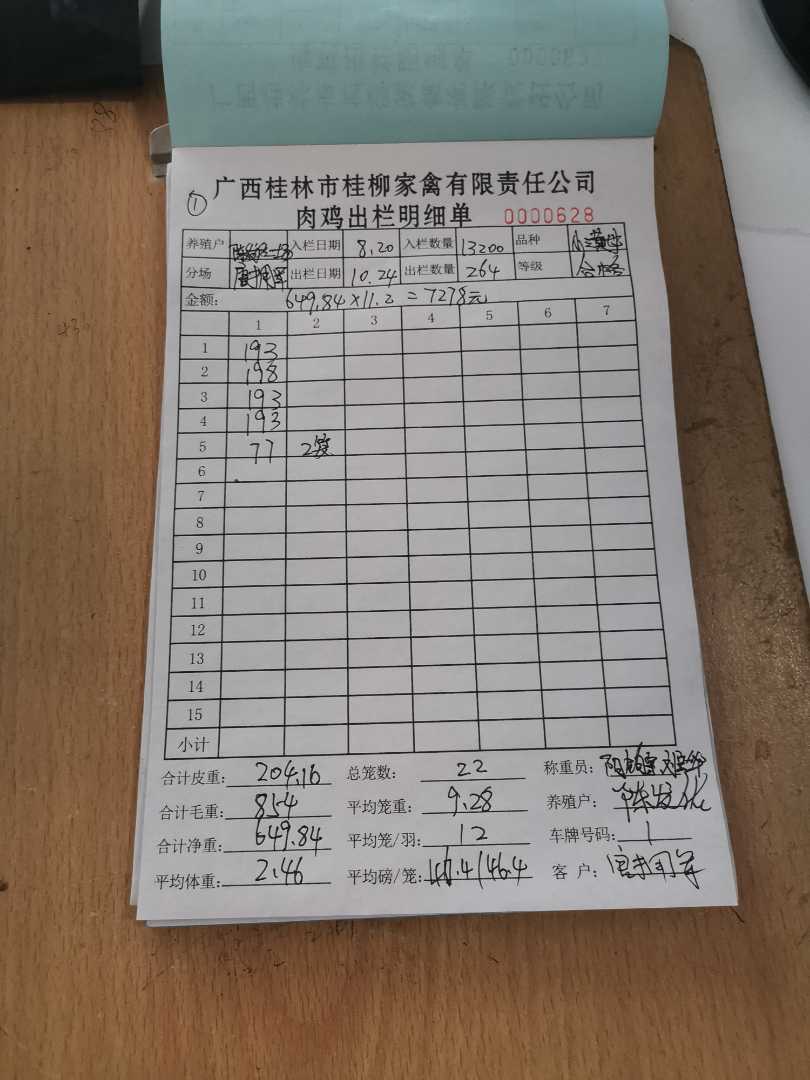 广西桂林市桂柳家禽有限责任公司
① 肉鸡出栏明细单 0000628
养殖户 入栏日期 8.20 入栏数量 13200 品种
分场 出栏日期 10.24 出栏数量 264 等级 合格
金额: 649.84×11.2=7278元
1 2 3 4 5 6 7
1 193
2 198
3 193
4 193
5 77 2笼
6
7
8
9
10
11
12
13
14
15
小计
合计皮重: 204.16 总笼数: 22 称重员:
合计毛重: 854 平均笼重: 9.28 养殖户:
合计净重: 649.84 平均笼/羽: 12 车牌号码: 1
平均体重: 2.46 平均磅/笼: /46.4 客 户: